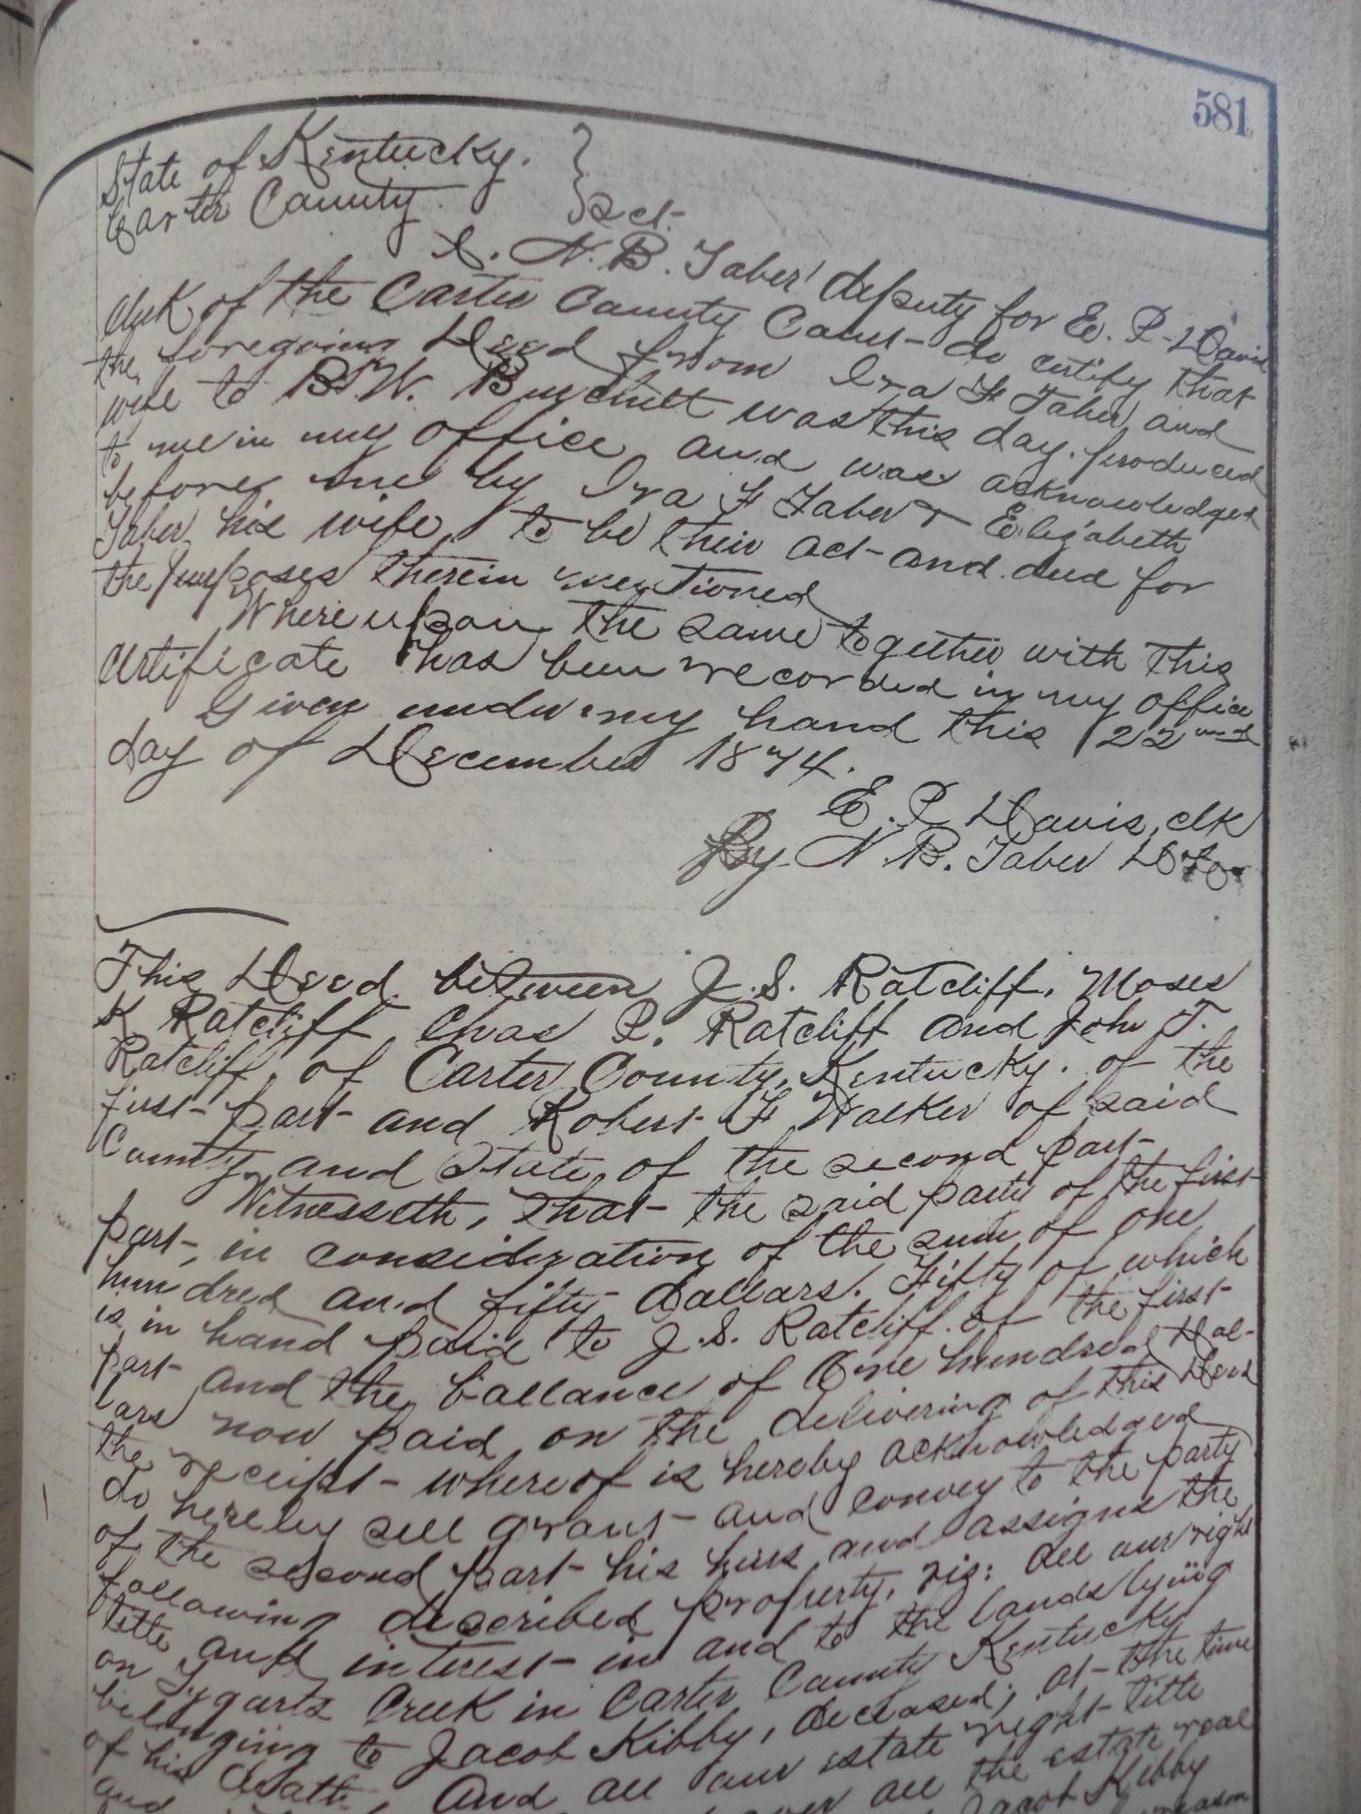 581
State of Kentucky. }
Carter County. } Sct.
I. N. B. Taber deputy for E. P. Davis
clerk of the Carter County Court do certify that
the foregoing Deed from Ira F Taber and
wife to B. W. Burchett was this day produced
to me in my office and was acknowledged
before me by Ira F Taber & Elizabeth
Taber his wife, to be their act and deed for
the purposes therein mentioned
Whereupon the same together with this
certificate has been recorded in my office
Given under my hand this 22nd
day of December 1874.
E. P. Davis, clk
By N. B. Taber
This Deed between J. S. Ratcliff, Moses
K Ratcliff Chas P. Ratcliff and John T.
Ratcliff, of Carter County, Kentucky. of the
first part and Robert F Walker of said
County and State, of the second part
Witnesseth, That the said party of the first
part, in consideration of the sum of one
hundred and fifty dollars. Fifty of which
is in hand paid to J. S. Ratcliff of the first
part and the ballance of One hundred Dol-
lars now paid, on the delivering of this Deed
the receipt whereof is hereby acknowledged
do hereby sell grant and convey to the party
of the second part his heirs and assigns the
following described property, viz: all our right
title and interest in and to the lands lying
on Tygarts Creek in Carter County Kentucky
belonging to Jacob Kibby, deceased, at the time
of his death, And all our estate right title
and over all the estate real
Jacob Kibby